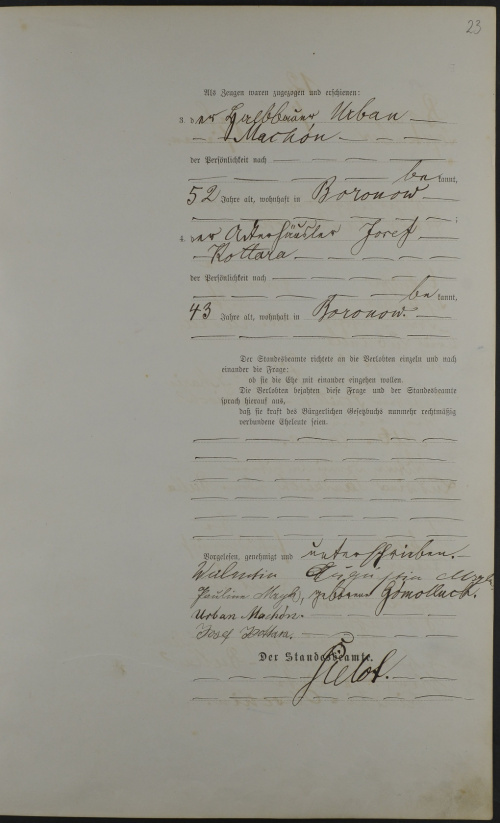 23
Als Zeugen waren zugezogen und erschienen:
3. der Halbbauer Urban
Machón
der Persönlichkeit nach
be kannt,
52 Jahre alt, wohnhaft in Boronow
;
4. der Ackerhäusler Josef
Kottara
der Persönlichkeit nach
be kannt,
43 Jahre alt, wohnhaft in Boronow.
Der Standesbeamte richtete an die Verlobten einzeln und nach
einander die Frage:
ob sie die Ehe mit einander eingehen wollen.
Die Verlobten bejahten diese Frage und der Standesbeamte
sprach hierauf aus,
daß sie kraft des Bürgerlichen Gesetzbuchs nunmehr rechtmäßig
verbundene Eheleute seien.
Vorgelesen, genehmigt und unterschrieben.
Walentin Augustin
Pauline geborene Gomolluch.
Urban Machón.
Josef Kottara.
Der Standesbeamte.